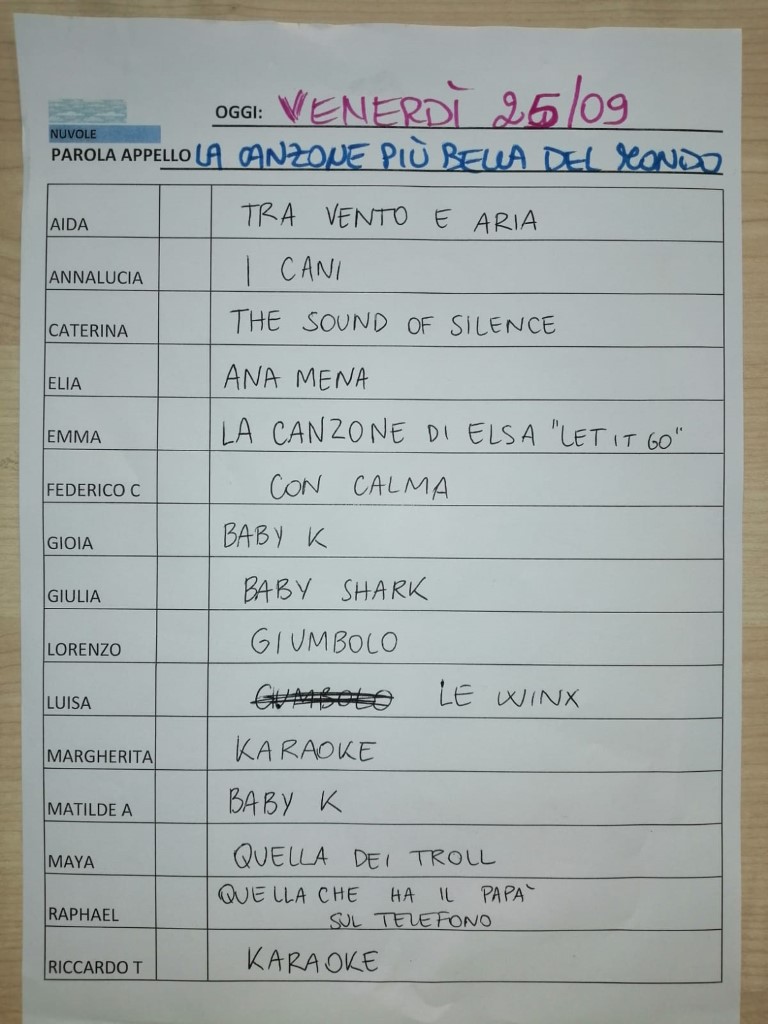 OGGI: VENERDÌ 25/09
NUVOLE
PAROLA APPELLO LA CANZONE PIÙ BELLA DEL MONDO
AIDA TRA VENTO E ARIA
ANNALUCIA I CANI
CATERINA THE SOUND OF SILENCE
ELIA ANA MENA
EMMA LA CANZONE DI ELSA "LET IT GO"
FEDERICO C CON CALMA
GIOIA BABY K
GIULIA BABY SHARK
LORENZO GIUMBOLO
LUISA GUMBOLO LE WINX
MARGHERITA KARAOKE
MATILDE A BABY K
MAYA QUELLA DEI TROLL
RAPHAEL QUELLA CHE HA IL PAPA'
SUL TELEFONO
RICCARDO T KARAOKE